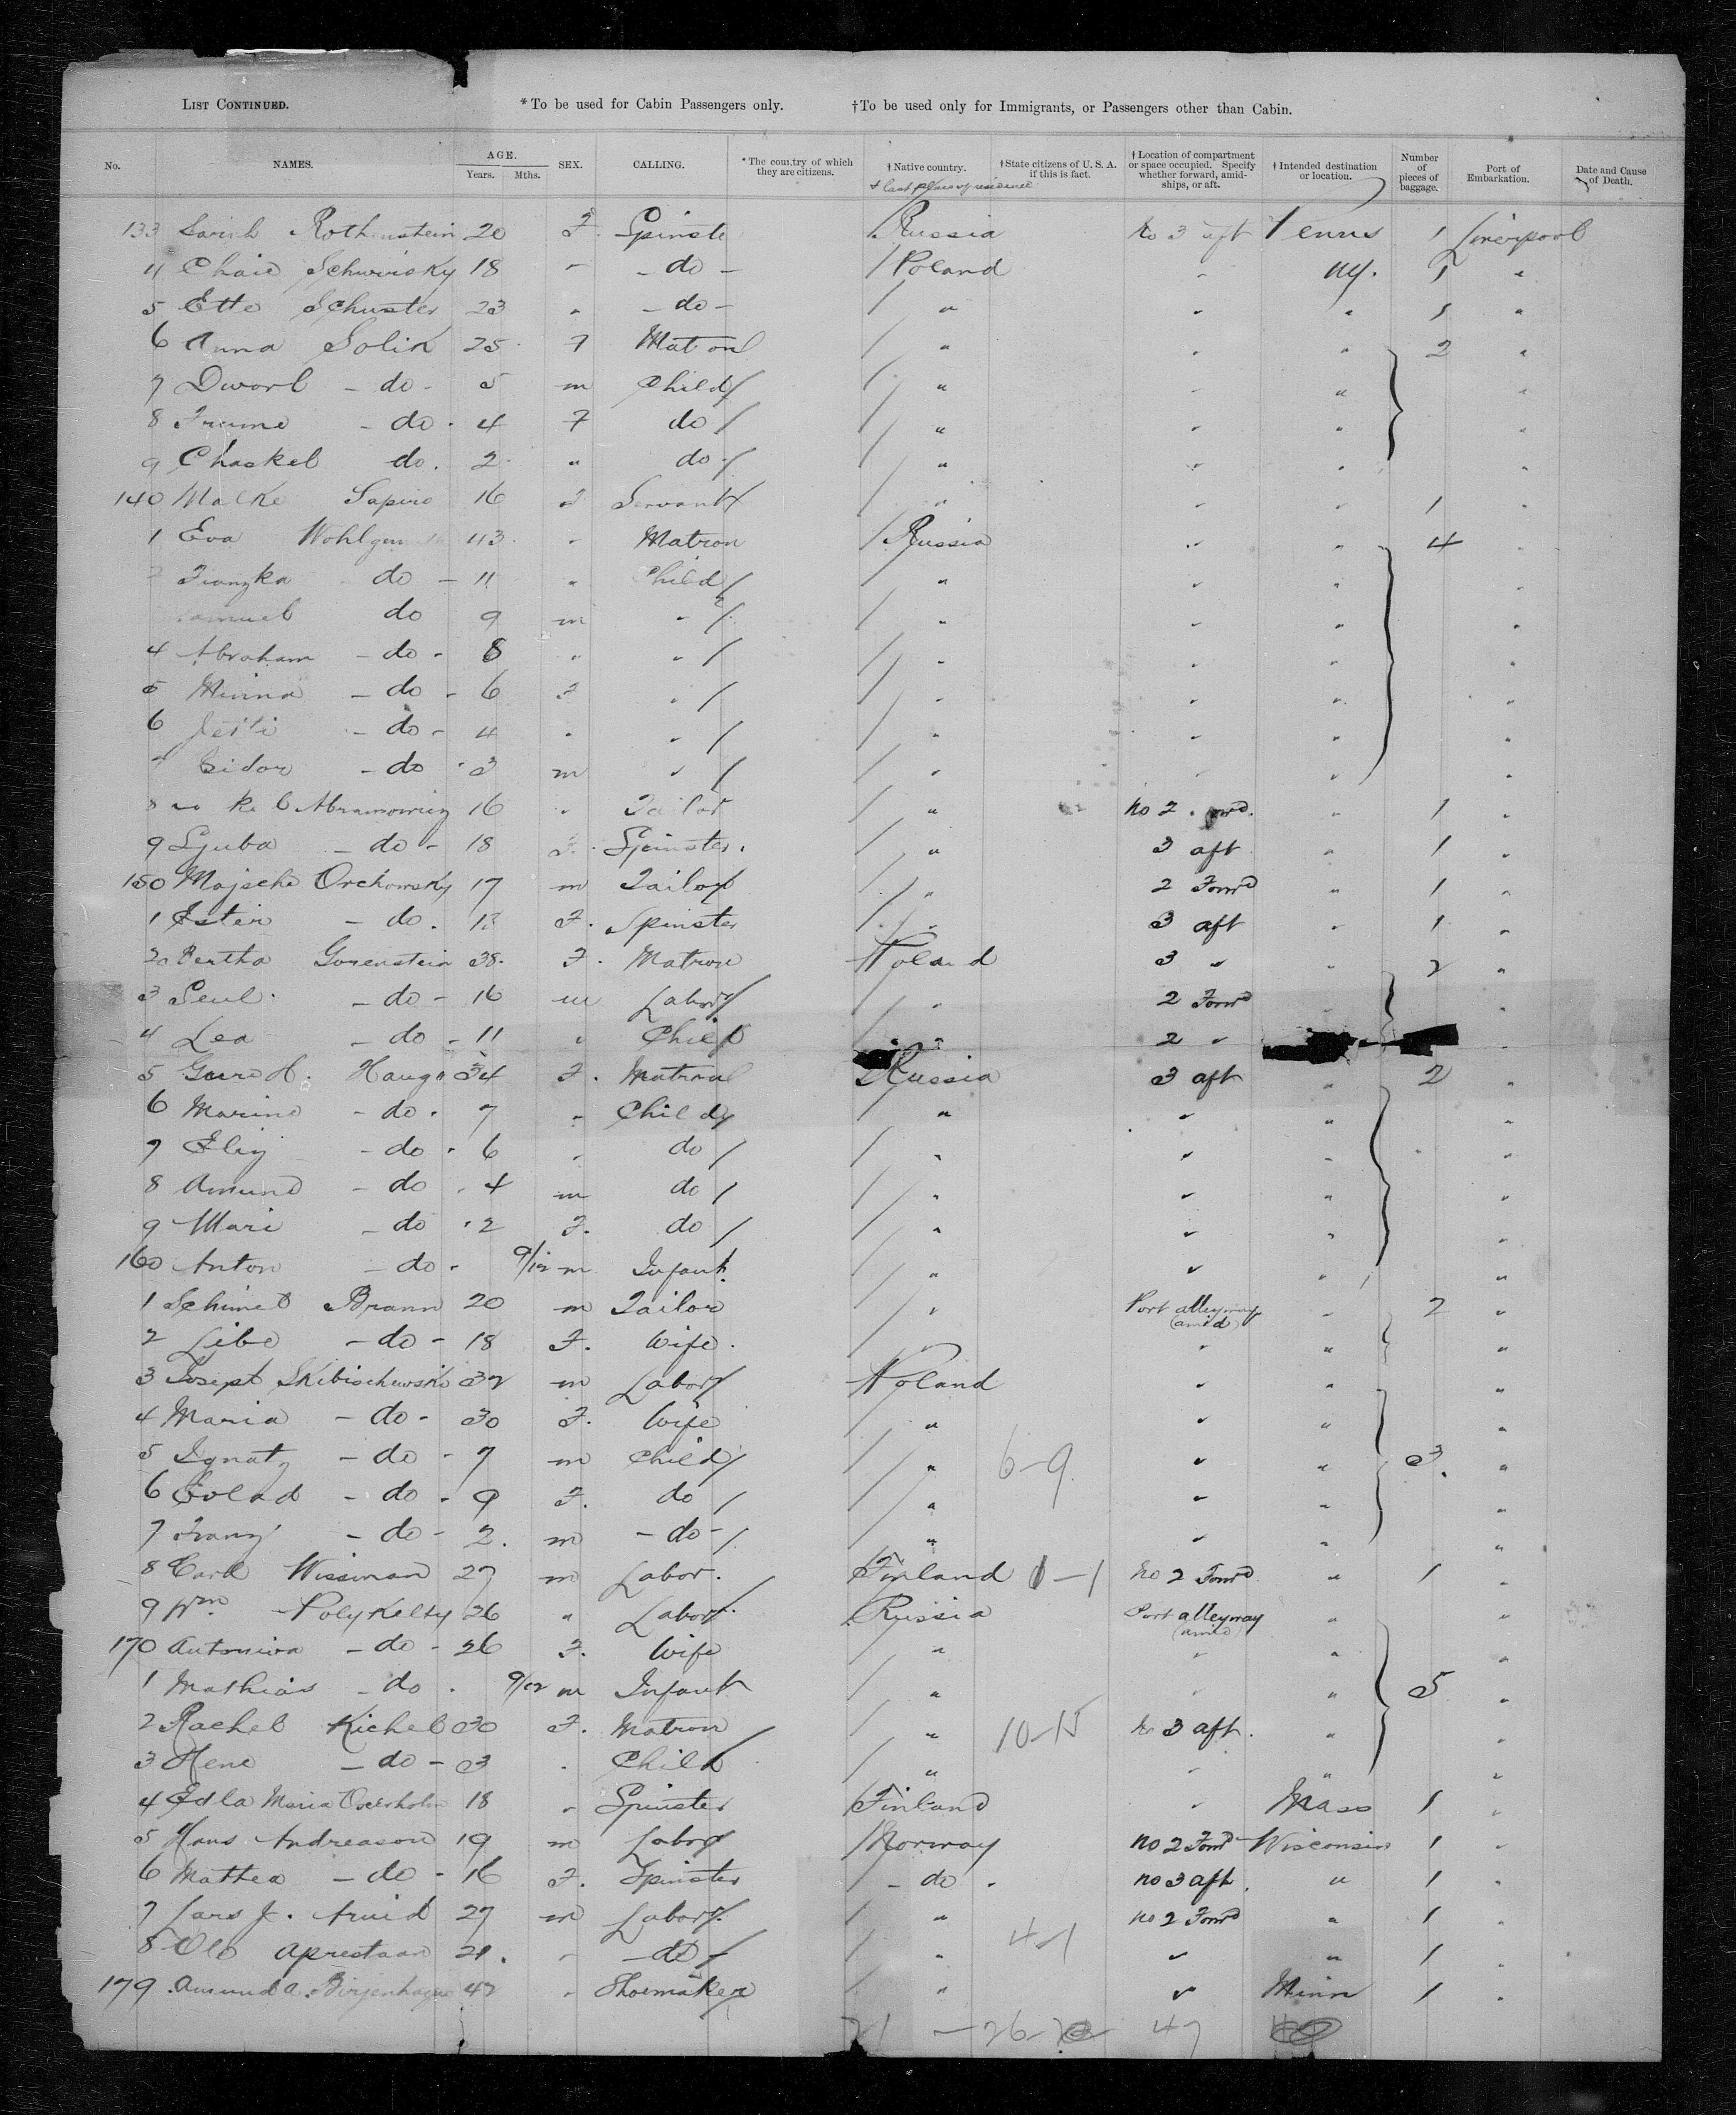 LIST CONTINUED. *To be used for Cabin Passengers only. †To be used only for Immigrants, or Passengers other than Cabin.
No. NAMES. AGE. Years. Mths. SEX. CALLING. *The country of which they are citizens. †Native country. †State citizens of U. S. A. if this is fact. †Location of compartment or space occupied. Specify whether forward, amidships, or aft. †Intended destination or location. Number of pieces of baggage. Port of Embarkation. Date and Cause of Death.
& last place of residence
133 Sarah Rothenstein 20 F. Spinste Russia No 3 aft Penns 1 Liverpool
4 Chaie 18 " - do - Poland " NY. 1 "
5 Ette Schuster 23 " - do - " " " 1 "
6 Anna Solik 25 F Matron " " " 2 "
7 Dworl - do - 5 m Child " " " "
8 Frume - do - 4 F do " " " "
9 Chaskel do. 2 " do " " " "
140 Malke Sapiro 16 F Servant " " " 1 "
1 Eva 43 " Matron Russia " " 4 "
2 - do - 11 " Child " " " "
Samuel do 9 m " " " " "
4 Abraham - do - 8 " " " " " "
5 Minna - do - 6 F " " " " "
6 - do - 4 " " " " " "
7 Isidor - do - 3 m " " " " "
8 Abramowicz 16 " Tailor " No 2 " 1 "
9 Ljuba - do - 18 F. Spinster. " 3 aft " 1 "
150 Mojsche Orchowsky 17 m Tailor " 2 Forwd " 1 "
1 Ester - do . F. Spinster " 3 aft " 1 "
2 Bertha Gorenstein 38 F. Matron Poland 3 " " 2 "
3 - do - 16 m Labor " 2 Forwd " "
4 Lea - do - 11 " Child " 2 " "
5 Haugn 34 F. Matron Russia 3 aft " 2 "
6 Marino - do - 7 " Child " " " "
7 - do - 6 " do " " " "
8 Amund - do - 4 m do " " " "
9 Mari - do - 2 F. do " " " "
160 Anton - do - 9/12 m Infant " " " "
1 Braun 20 m Tailor " Port alleyway (amid) " 2 "
2 Libe - do - 18 F. Wife. " " " "
3 Josept Skibischewski 32 m Labor Poland " " "
4 Maria - do - 30 F. Wife " " " "
5 Ignatz - do - 7 m Child " 6-9 " " 3. "
6 - do - 9 F. do " " " "
7 Franz - do - 2. m - do - " " " "
8 Carl Wissman 27 m Labor. Finland 1-1 No 2 Forwd " 1 "
9 Wm Polykelty 26 " Labor. Russia Port alleyway (amid) " "
170 - do - 26 F. Wife " " " "
1 Mathias - do . 9/12 m Infant " " " 5 "
2 Rachel Kichel 30 F. Matron " 10-15 No 3 aft. " "
3 Hene - do - 3 . Child " " " "
4 Edla Maria 18 " Spinster Finland " Mass 1 "
5 Hans Andreason 19 m Labor Norway No 2 Forwd Wisconsin 1 "
6 Mattea - do - 16 F. Spinster - do - No 3 aft. " 1 "
7 Lars J. 27 m Labor " No 2 Forwd " 1 "
8 Ole 21. " - do - " 4-1 " " 1 "
179 Amund A. 47 " Shoemaker " " Minn 1 "
21 - 26 - 47